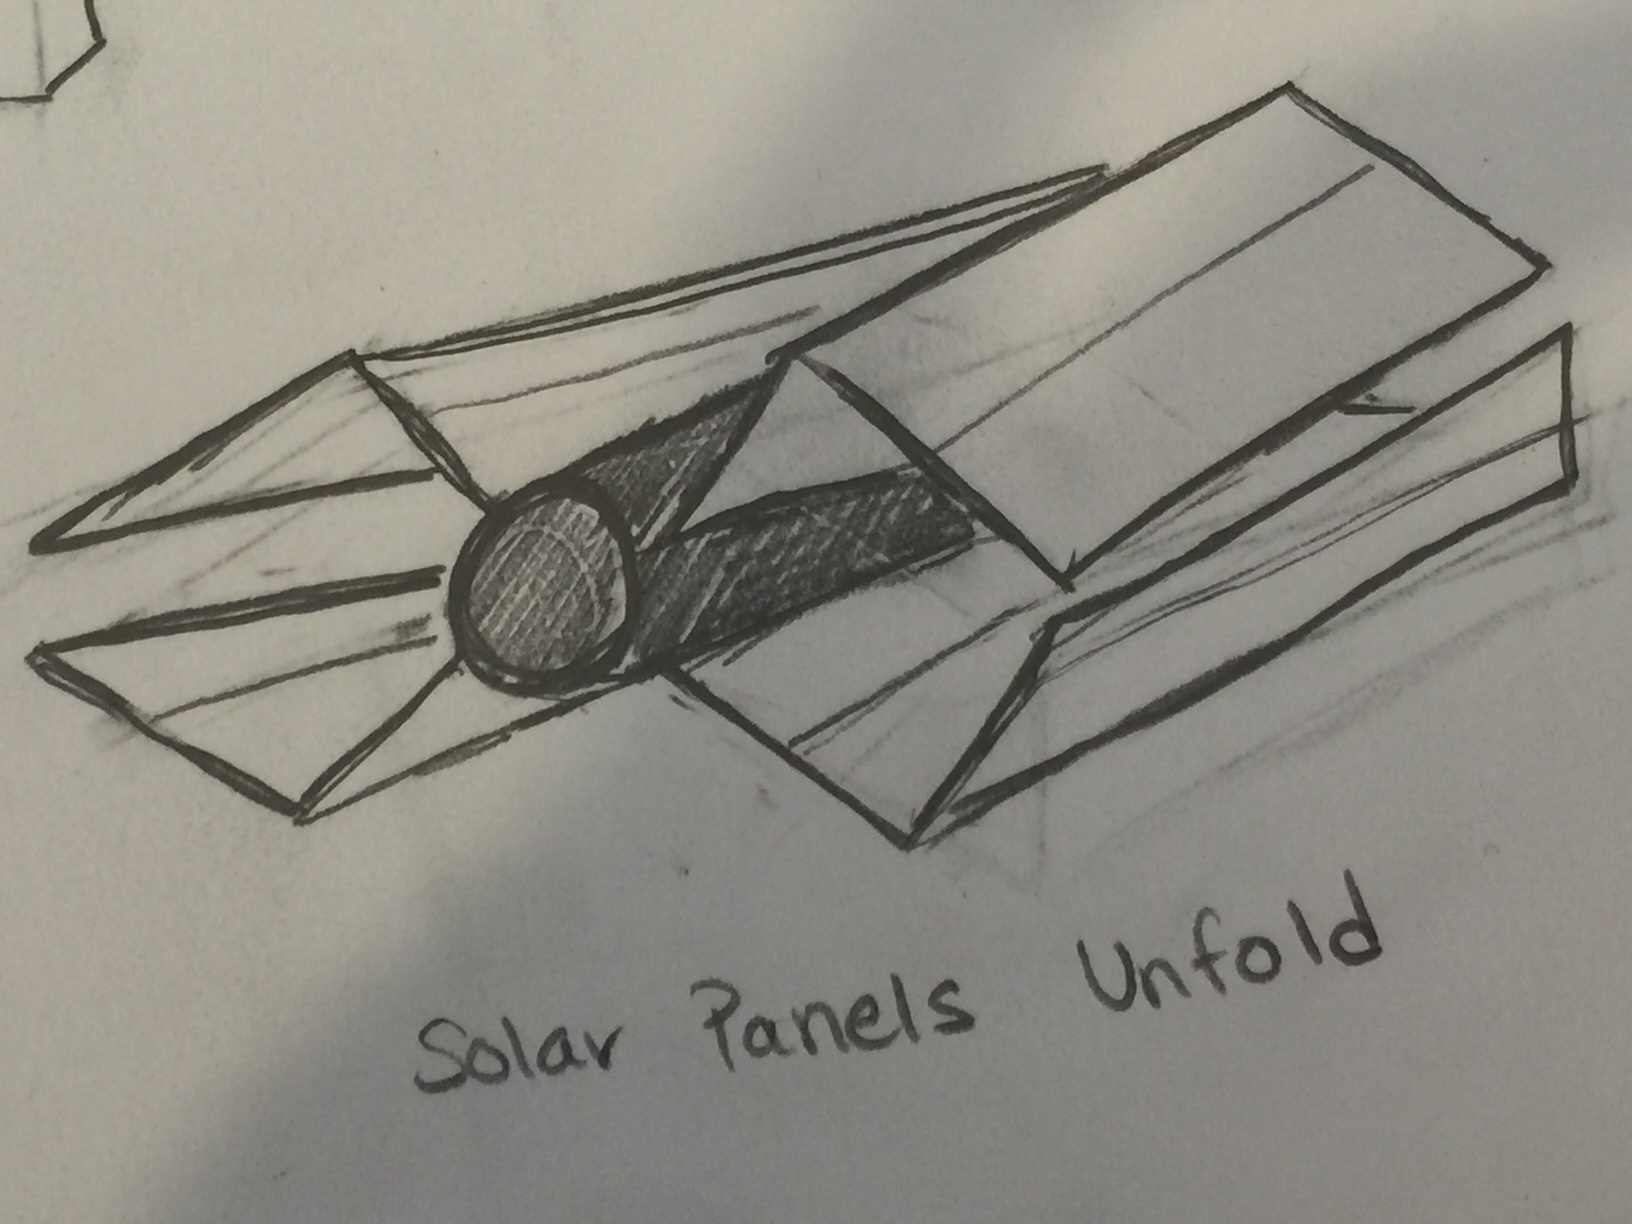 Solar Panels Unfold